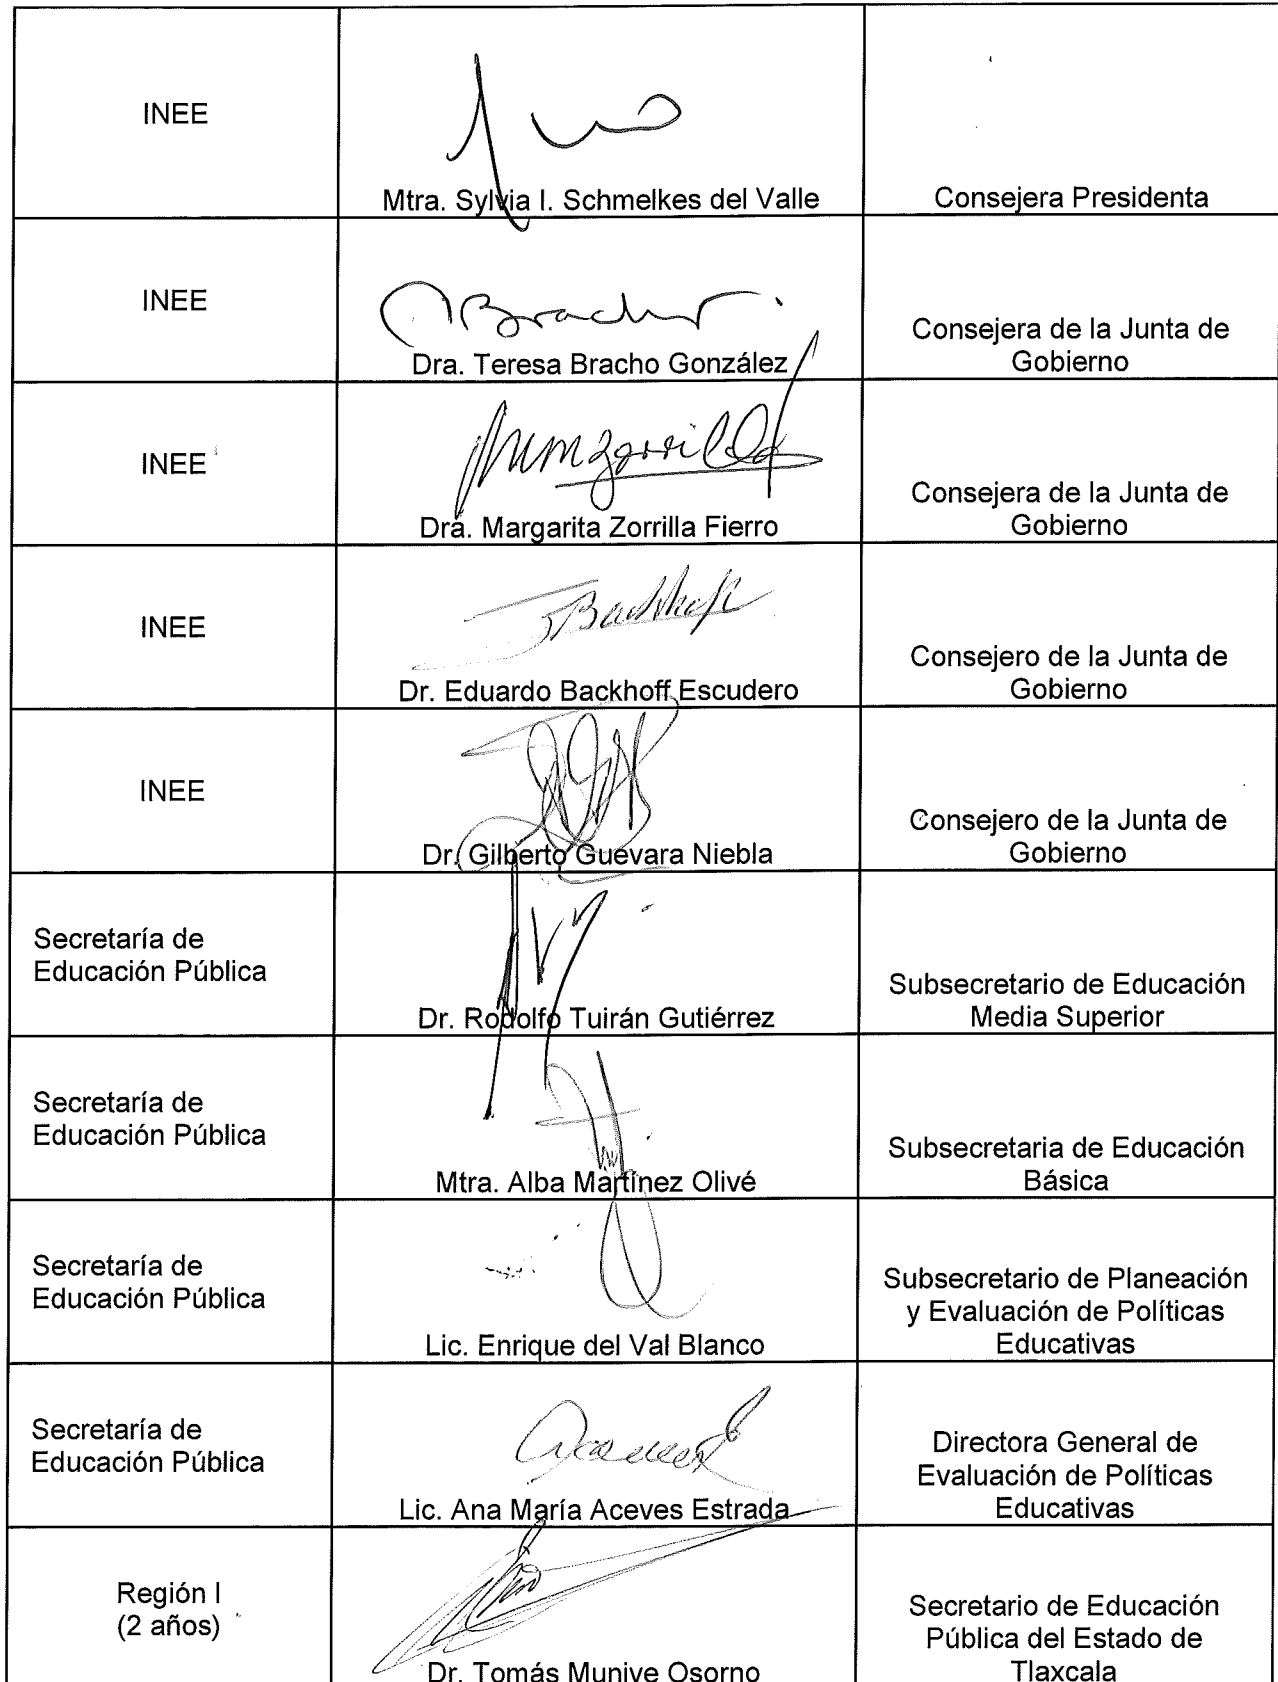 INEE
Mtra. Sylvia I. Schmelkes del Valle
Consejera Presidenta
INEE
Dra. Teresa Bracho González
Consejera de la Junta de
Gobierno
INEE
Dra. Margarita Zorrilla Fierro
Consejera de la Junta de
Gobierno
INEE
Dr. Eduardo Backhoff Escudero
Consejero de la Junta de
Gobierno
INEE
Dr. Gilberto Guevara Niebla
Consejero de la Junta de
Gobierno
Secretaría de
Educación Pública
Dr. Rodolfo Tuirán Gutiérrez
Subsecretario de Educación
Media Superior
Secretaría de
Educación Pública
Mtra. Alba Martínez Olivé
Subsecretaria de Educación
Básica
Secretaría de
Educación Pública
Lic. Enrique del Val Blanco
Subsecretario de Planeación
y Evaluación de Políticas
Educativas
Secretaría de
Educación Pública
Lic. Ana María Aceves Estrada
Directora General de
Evaluación de Políticas
Educativas
Región I
(2 años)
Dr. Tomás Munive Osorno
Secretario de Educación
Pública del Estado de
Tlaxcala